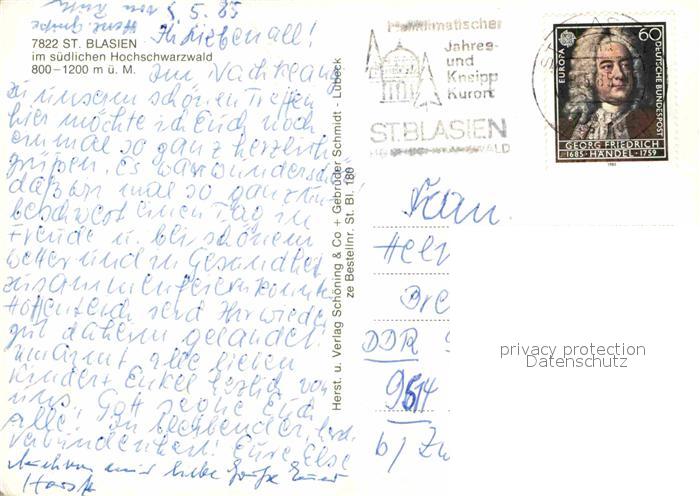 5. 85
7822 ST. BLASIEN
im südlichen Hochschwarzwald
800–1200 m ü. M.
Ihr Lieben all!
Im Nachklang
zu unserm schönen Treffen
hier möchte ich Euch noch
einmal so ganz herzlich
grüßen. Es war wunderschön
daß wir mal so ganz
beschwert einen Tag in
Freude u. bei schönem
Wetter und in Gesundheit
zusammen feiern konnten
Hoffentlich seid Ihr wieder
gut daheim gelandet.
Umarmt alle lieben
Kinder + Enkel herzlich von
uns. Gott segne Euch
Alle! In
verbundenheit! Eure Else
liebe Grüße Euer
Horst
Herst. u. Verlag Schöning & Co + Gebrüder Schmidt - Lübeck
ze Bestellnr. St. Bl. 180
Heilklimatischer
Jahres-
und
Kneipp
Kurort
ST. BLASIEN
HOCHSCHWARZWALD
EUROPA
60
DEUTSCHE BUNDESPOST
GEORG FRIEDRICH
1685 · HÄNDEL · 1759
1985
Fam.
Hel
Bre
DDR
9514
b/ Zw
privacy protection
Datenschutz